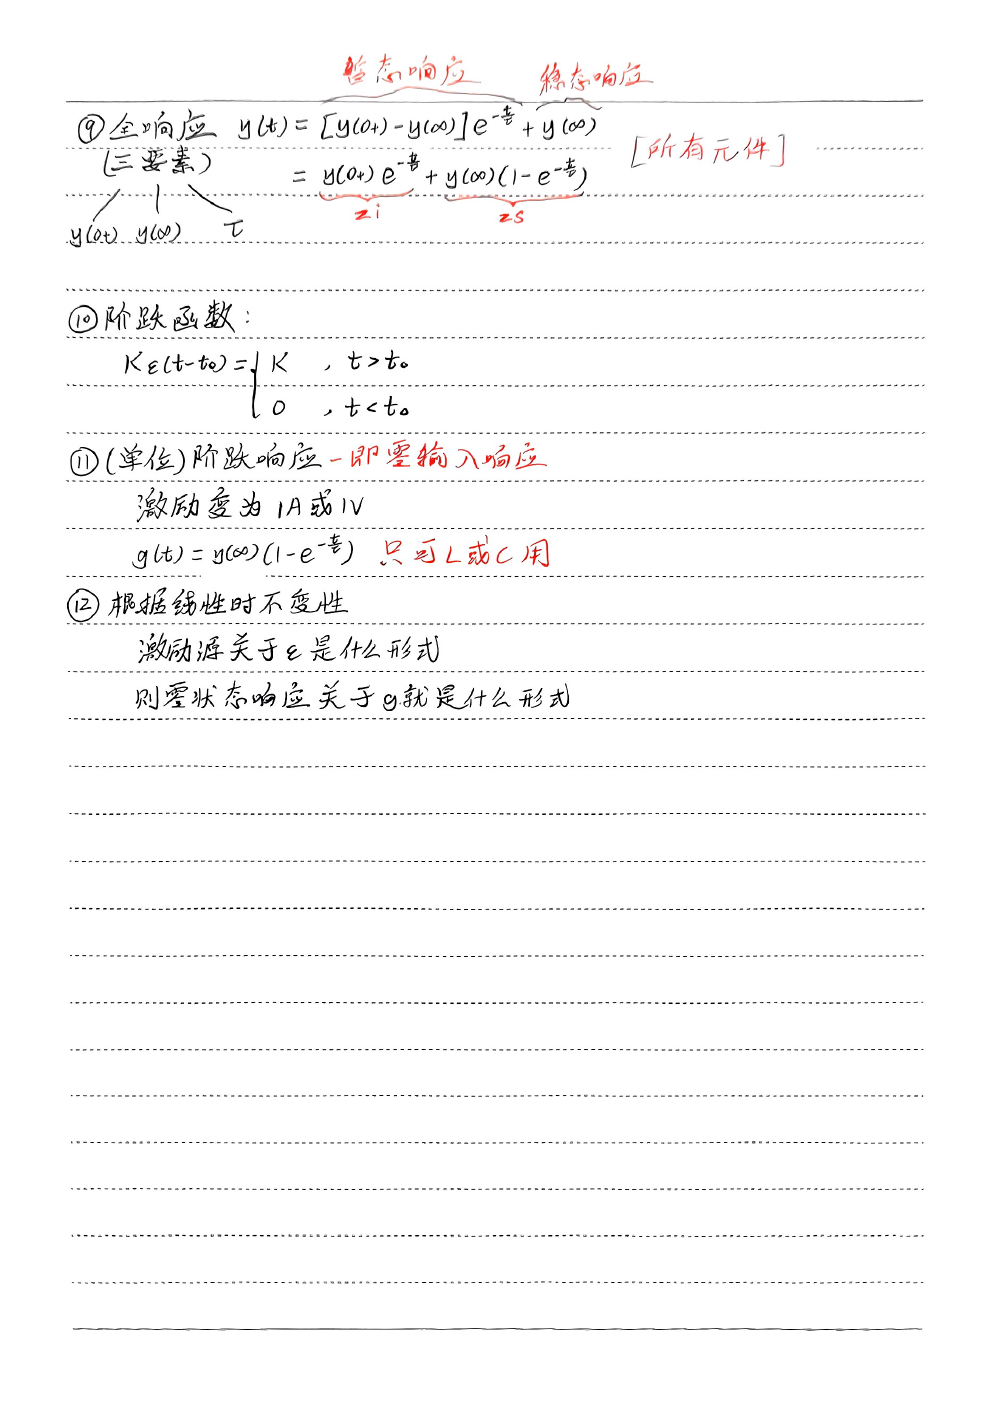 暂态响应 稳态响应
⑨ 全响应 y(t) = [y(0+) - y(∞)] e^{-t/τ} + y(∞) [所有元件]
(三要素) = y(0+) e^{-t/τ} + y(∞)(1 - e^{-t/τ})
zi zs
y(0+) y(∞) τ
⑩ 阶跃函数:
Kε(t-t₀) = { K , t>t₀
0 , t<t₀
⑪ (单位)阶跃响应 - 即零输入响应
激励变为 1A或1V
g(t) = y(∞)(1 - e^{-t/τ}) 只可L或C用
⑫ 根据线性时不变性
激励源关于ε是什么形式
则零状态响应关于g就是什么形式